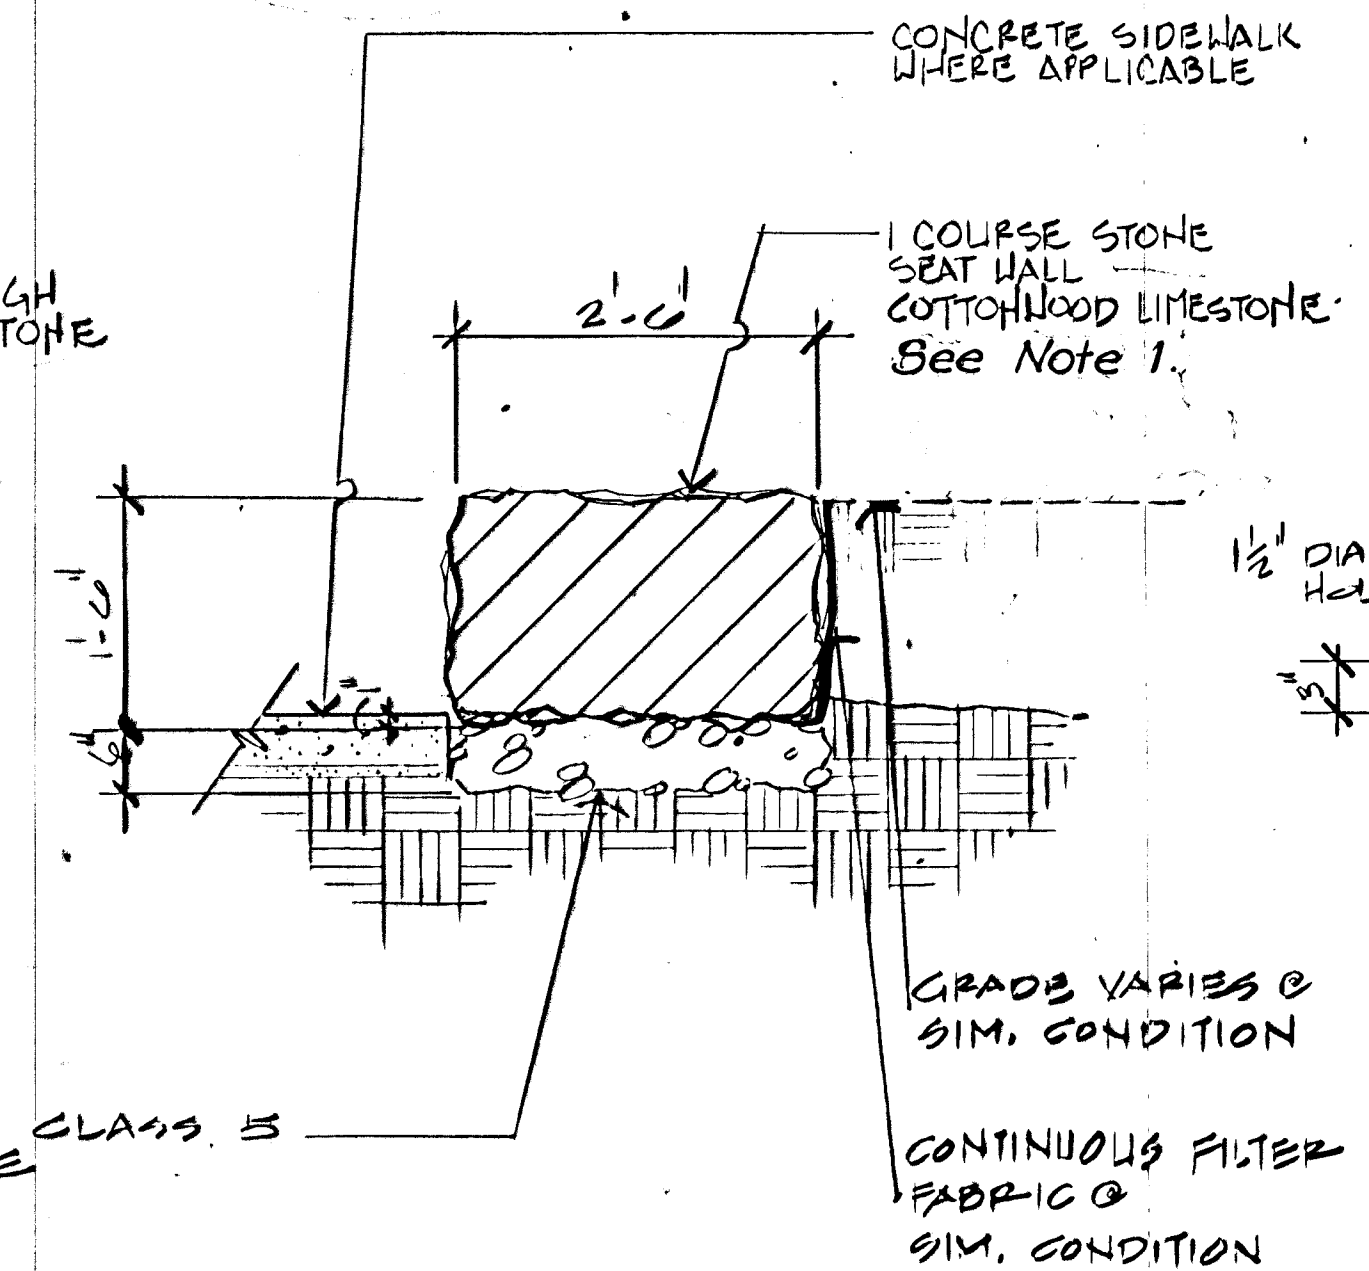 CONCRETE SIDEWALK
WHERE APPLICABLE
1 COURSE STONE
SEAT WALL
COTTONWOOD LIMESTONE.
See Note 1.
GH
TONE
2'-6"
1'-6"
1"
6"
1½" DIA
HOL
3"
GRADE VARIES @
SIM. CONDITION
CLASS 5
E
CONTINUOUS FILTER
FABRIC @
SIM. CONDITION